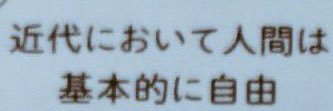 近代において人間は
基本的に自由